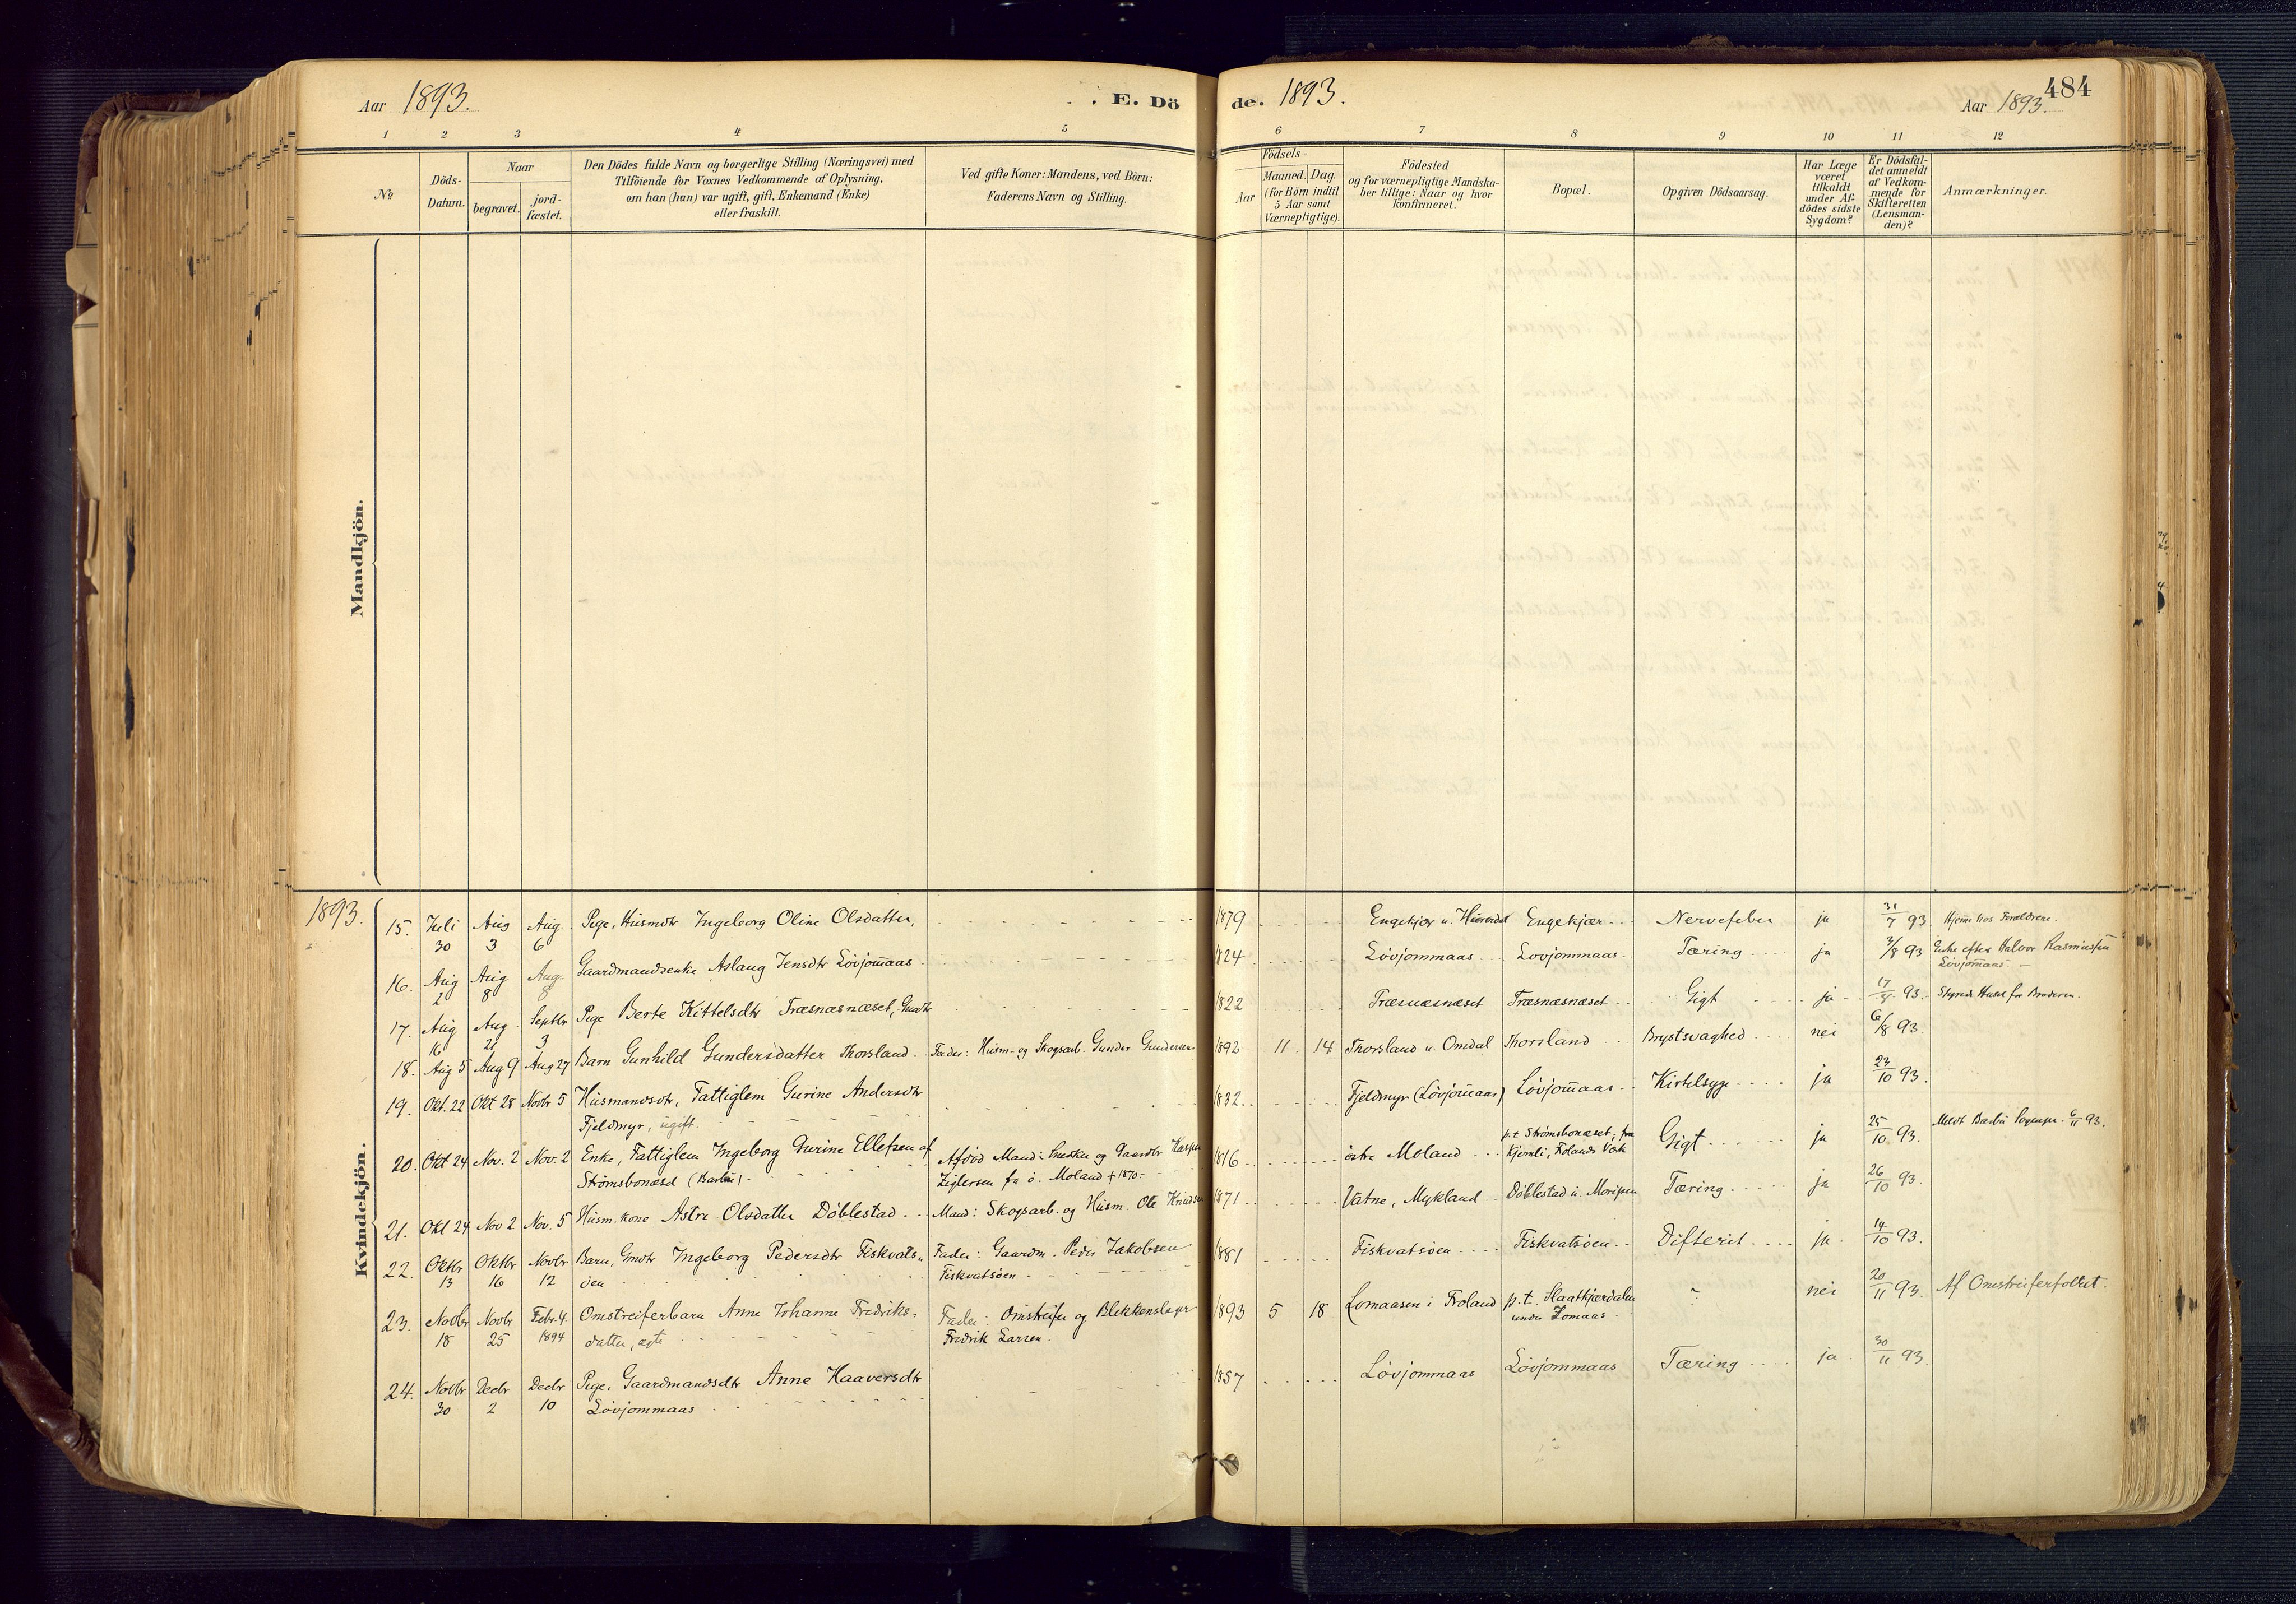 Aar 1893.
E. Dö
de. 1893.
Aar 1893.
484
1 2 3 4 5 6 7 8 9 10 11 12
No
Döds-
Datum.
Naar
begravet.
jord-
fæstet.
Den Dödes fulde Navn og borgerlige Stilling (Næringsvei) med
Tilföiende for Voxnes Vedkommende af Oplysning,
om han (hun) var ugift, gift, Enkemand (Enke)
eller fraskilt.
Ved gifte Koner: Mandens, ved Börn:
Faderens Navn og Stilling.
Födsels-
Aar
Maaned. Dag.
(for Börn indtil
5 Aar samt
Værnepligtige).
Födested
og for værnepligtige Mandska-
ber tillige: Naar og hvor
konfirmeret.
Bopæl.
Opgiven Dödsaarsag.
Har Læge
været
tilkaldt
under Af-
dödes sidste
Sygdom?
Er Dödsfal-
det anmeldt
af Vedkom-
mende for
Skifteretten
(Lensman-
den)?
Anmærkninger.
Mandkjön.
Kvindekjön.
1893.
15. Juli 30 Aug 3 Aug. 6 Pige, Husmdtr Ingeborg Oline Olsdatter, 1879 Engekjær u. Engekjær Nervefeber ja 31/7 93 Hjem hos Forældrene.
16. Aug 2 Aug 8 Aug 8 Gaardmandsenke Aslaug Jensdtr Lövjom̅aas 1824 Lövjommaas Lovjommaas Tæring ja 3/8 93 Enke efter Halvor Rasmussen
Lövjom̅aas
17. Aug 16 Aug 21 Septbr 3 Pige Berte Kittelsdtr Træsnæsnæset, Gmdtr 1822 Træsnæsnæset Træsnæsnæset Gigt ja 17/8 93. Styrede Huset for Broderen.
18. Aug 5 Aug 9 Aug 27 Barn Gunhild Gundersdatter Thorsland Fader: Husm. og Skogsarb. Gunder Gundersen 1892 11 14 Thorsland u. Omdal Thorsland Brystsvaghed nei 6/8 93.
19. Okt. 22 Okt 28 Novbr 5 Husmandsdtr, Fattiglem Gurine Andersdtr 1832 Fjeldmyr (Lövjom̅aas) Lövjom̅aas Kirtelsyge ja 23/10 93.
Fjeldmyr, ugift.
20. Okt 24 Nov. 2 Nov. 2 Enke, Fattiglem Ingeborg Gurine Ellefsen af Afdöd Mand: 1816 östre Moland p.t. Strömsbonæset, fra Gigt ja 25/10 93. Meldt Barbu 6/11 93.
Strömsbonæset (Barbu) fra ö. Moland + 1870 Kjemli, Frolands Værk
21. Okt 24 Nov 2 Nov. 5 Husm. kone Astri Olsdatter Döblestad Mand: Skogsarb. og Husm. Ole Knudsen 1871 Vatne, Mykland Döblestad u. Tæring ja 26/10 93.
22. Oktbr 13 Oktbr 16 Novbr 12 Barn, Gmdtr Ingeborg Pedersdtr Fiskvats- Fader: Gaardm. Peder Jakobsen 1881 Fiskvatsöen Fiskvatsöen Difterit ja 14/10 93.
öen Fiskvatsöen
23. Novbr 18 Novbr 25 Febr. 4 1894 Omstreiferbarn Anne Johanne Fredriks- Fader: Omstreifer og Blikkenslager 1893 5 18 Lomaasen i Froland p.t. Slaatkjærdalen " nei 20/11 93. Af Omstreiferfolket.
datter, ægte Fredrik Larsen. under Lomaas
24. Novbr 30 Decbr 2 Decbr 10 Pige, Gaardmandsdtr Anne Haaversdtr 1857 Lövjommaas Lövjommaas Tæring ja 30/11 93.
Lövjommaas